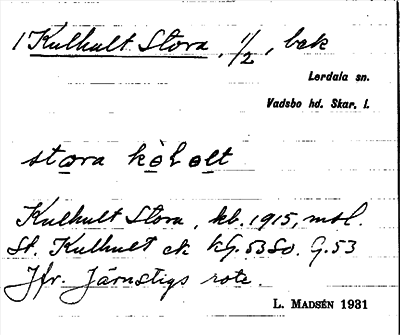 1 Kulhult Stora, 1/2, bak
Lerdala sn.
Vadsbo hd. Skar. l.
stora kolholt
Kulhult Stora, kb. 1915, msl.
St. Kulhult ek KG. 53 So. G. 53
Jfr. Järnstigs rote.
L. MADSÉN 1931